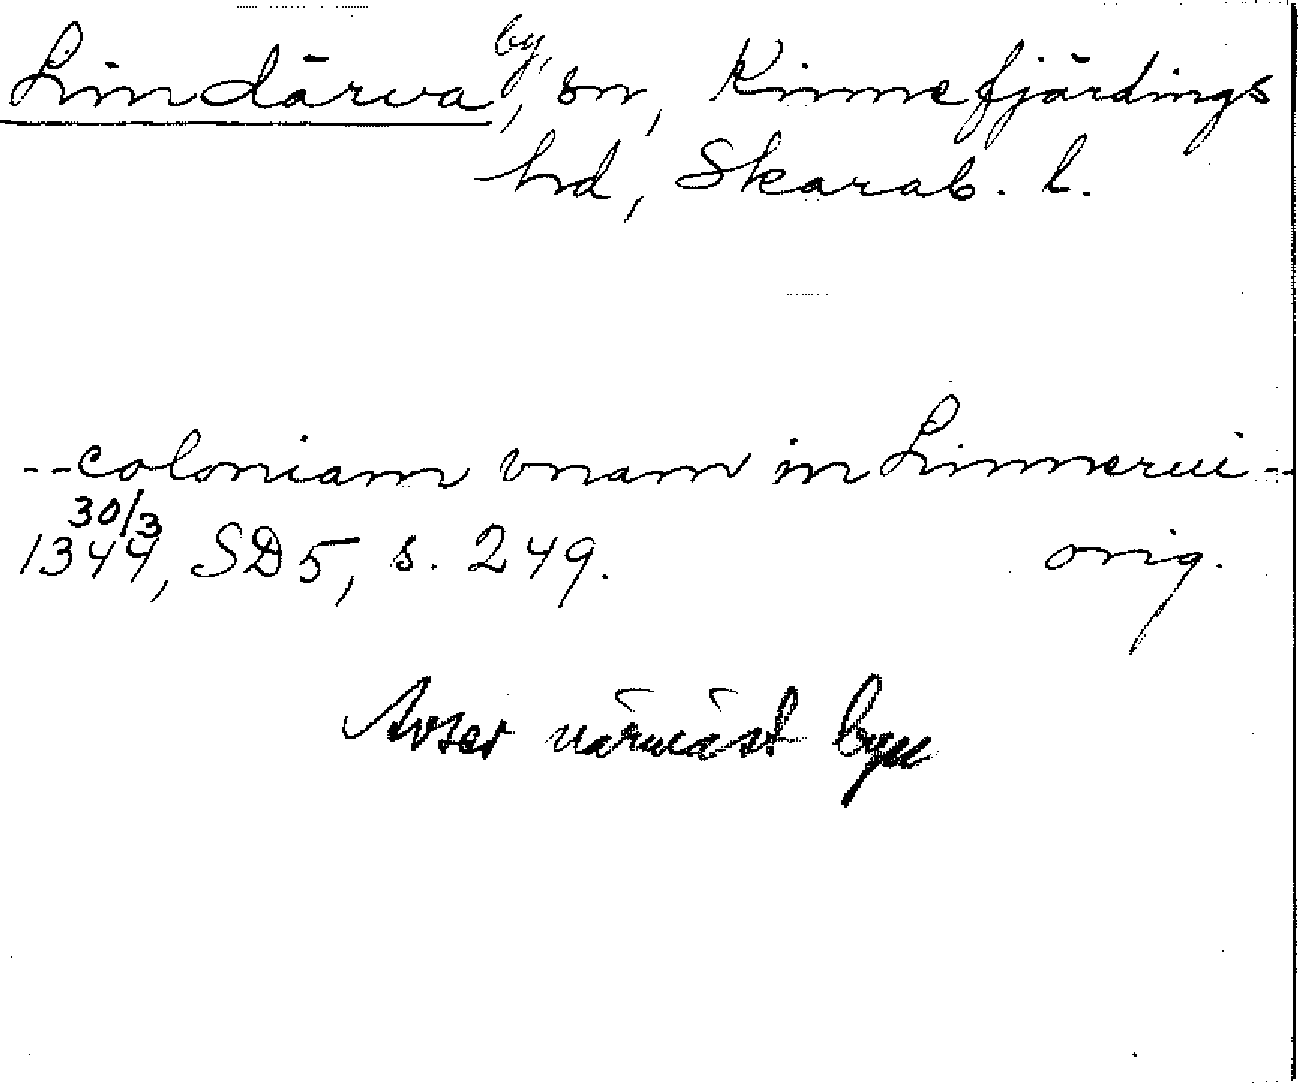 Lindärva, by, sn, Kinnefjärdings
hd, Skarab. l.
--coloniam vnam in Linnerui--
30/3
1344, SD5, s. 249. orig.
Avser närmast byn